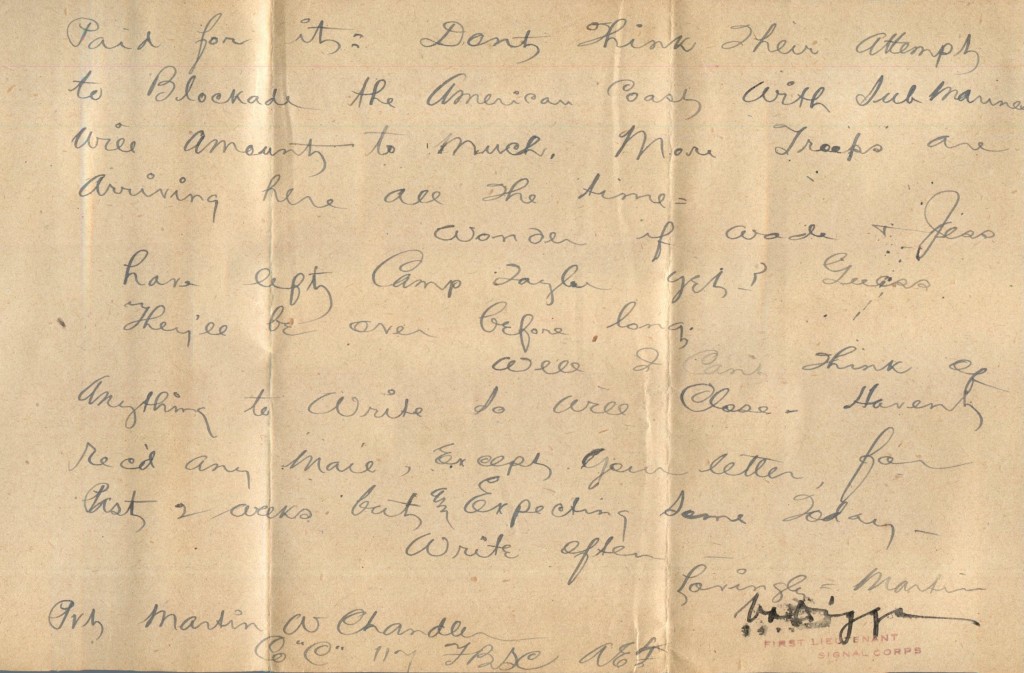 Paid for it = Dont Think Their Attempt
to Blockade the American Coast With Sub Marines
Will Amount to Much. More Troops are
Arriving here all The time =
Wonder if Wade + Jess
have left Camp Taylor yet? Guess
They'll be over before long.
Well I Can't Think of
Anything to Write So Will Close - Havent
Rec'd Any Mail, Except Your letter, for
Past 2 weeks but am Expecting Some Today -
Write often -
Lovingly = Martin
Pvt Martin W Chandler
Co "C" 117 F.B.S.C. AEF
FIRST LIEUTENANT
SIGNAL CORPS